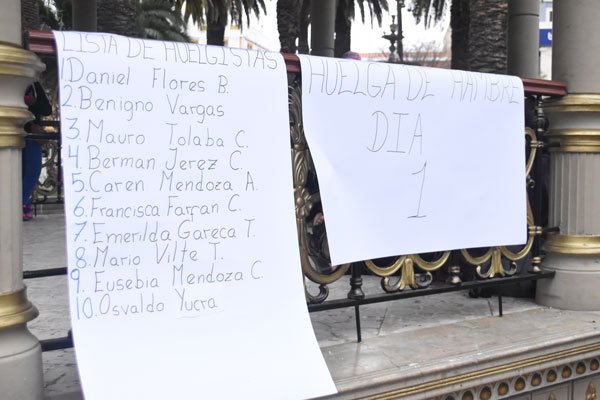 LISTA DE HUELGISTAS
1 Daniel Flores B.
2. Benigno Vargas
3. Mauro Tolaba C.
4 Berman Jerez C.
5. Caren Mendoza A.
6. Francisca Farfan C.
7. Emerilda Gareca T.
8. Mario Vilte T.
9. Eusebia Mendoza C.
10. Osvaldo Yucra
HUELGA DE HAMBRE
DIA
1